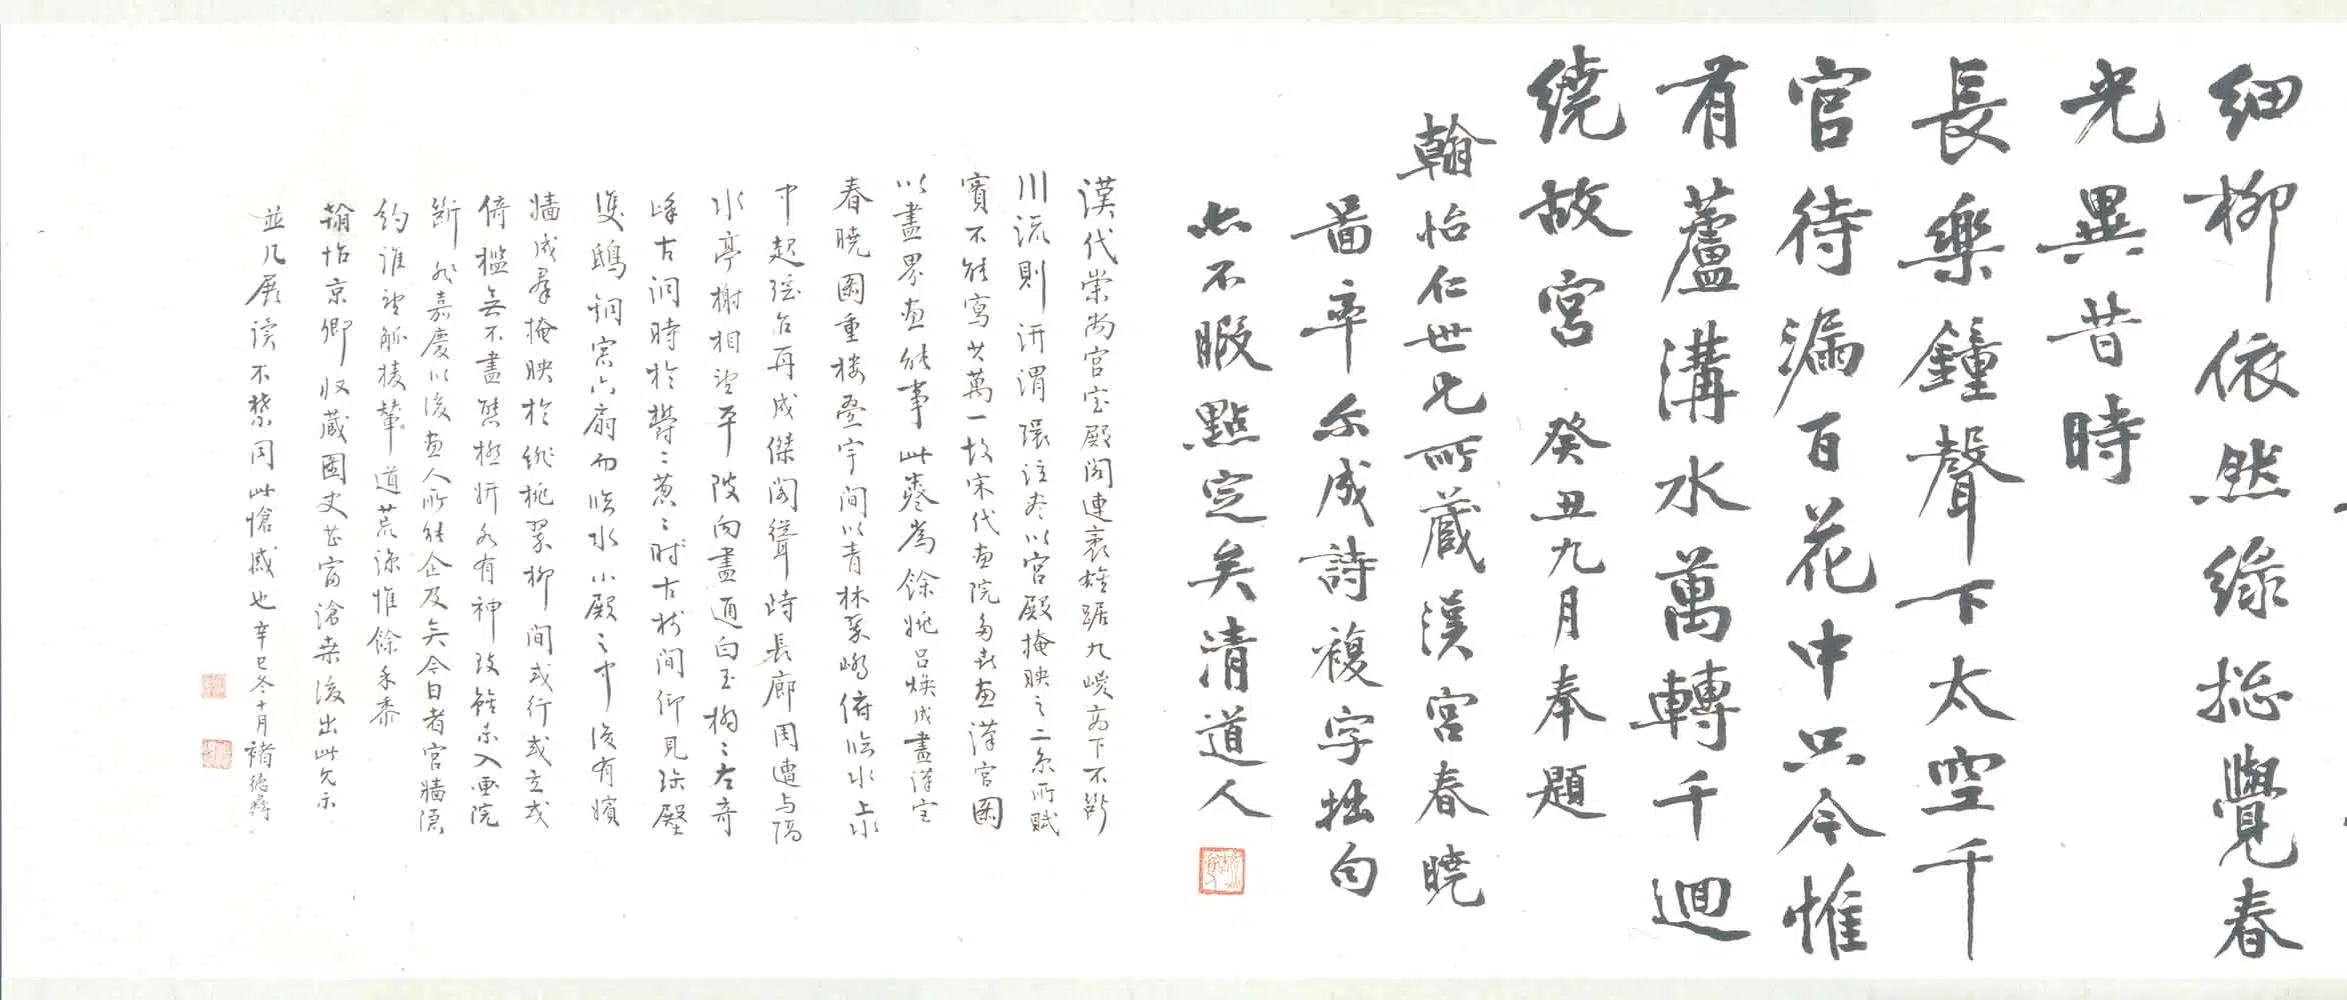 細柳依然綠摠覺春
光異昔時
長樂鐘聲下太空千
官待漏百花中只今惟
有蘆溝水萬轉千迴
繞故宮 癸丑九月奉題
翰怡仁世兄所藏漢宮春曉
啚率尔成詩複字拙句
亦不暇點定矣清道人
漢代崇尚宮室殿閣連袤雄踞九嵕高下不斷
川流則汧渭環注盡以宮殿掩映之二京所賦
賓不能寫其萬一故宋代畫院多喜畫漢宮圖
以盡界畫能事此卷為餘姚呂煥成畫漢宮
春曉圖重樓叠宇間以青林翠嶂俯臨水上
中起瑤台再成傑閣聳峙長廊周遭与隔
水亭榭相望平陂向盡通白玉橋之左奇
峰古洞時於鬱〻蔥〻時古樹間仰見珠殿
雙鴟銅窗六扇而臨水小殿之中復有嬪
嬙成羣掩映於緋桃翠柳間或行或立或
倚檻無不盡態極妍各有神致雖未入画院
斷非嘉慶以後畫人所能企及矣今日者宮牆隱
約誰望觚棱輦道荒涼惟餘禾黍
翰怡京卿收藏圖史甚富滄桑後出此見示
並几展讀不禁同此愴感也辛巳冬十月褚德彝